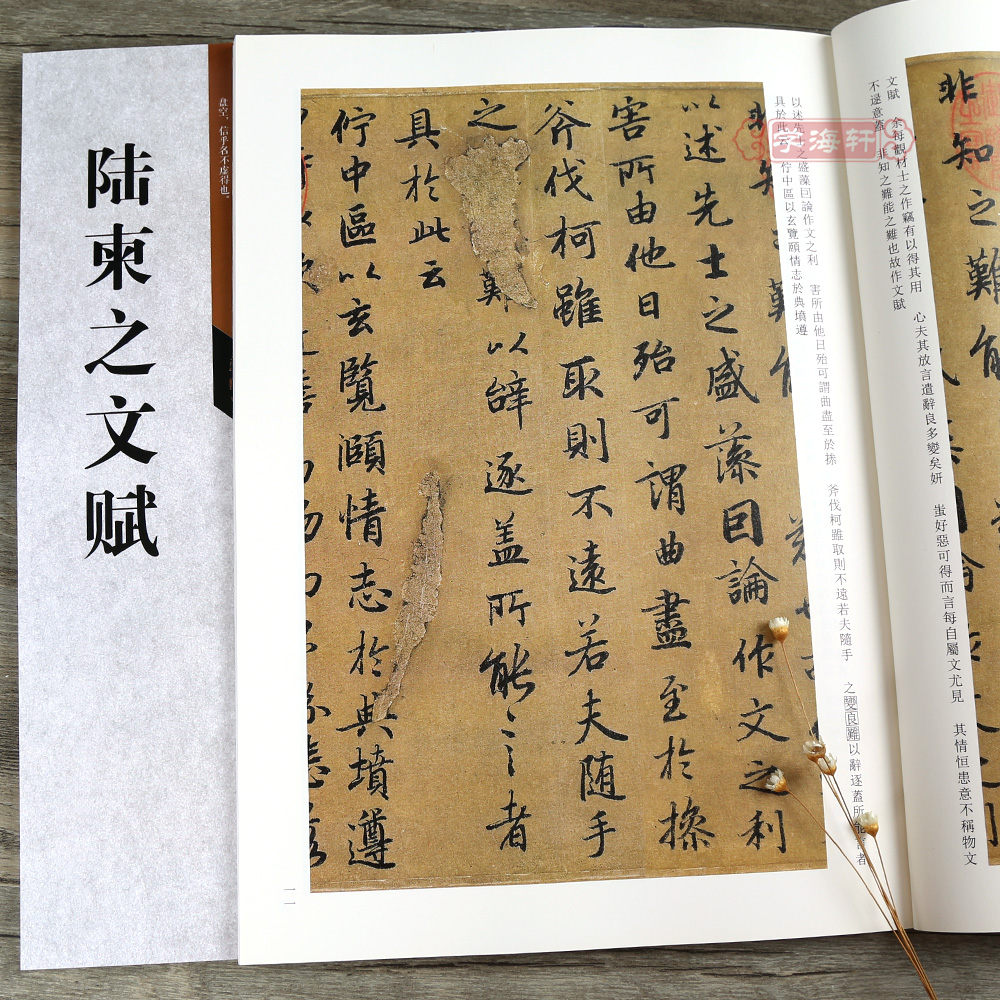 陆柬之文赋
盘空，信乎名不虚得也。
字海轩
非知之難能
文賦 余每觀材士之作竊有以得其用 心夫其放言遣辭良多變矣妍 蚩好惡可得而言每自屬文尤見 其情恒患意不稱物文
不逮意蓋 非知之難能之難也故作文賦
以述先士之盛藻囙論作文之利 害所由他日殆可謂曲盡至於操 斧伐柯雖取則不遠若夫隨手 之變良難以辭逐蓋所能言者
具於此云 佇中區以玄覽頤情志於典墳遵
以述先士之盛藻囙論作文之利
害所由他日殆可謂曲盡至於操
斧伐柯雖取則不遠若夫随手
之 難以辭逐盖所能言者
具於此云
佇中區以玄覽頤情志於典墳遵
一一